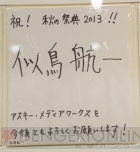 祝! 秋の祭典2013!!
似鳥航一
アスキー・メディアワークスを
今後ともよろしくお願いします!